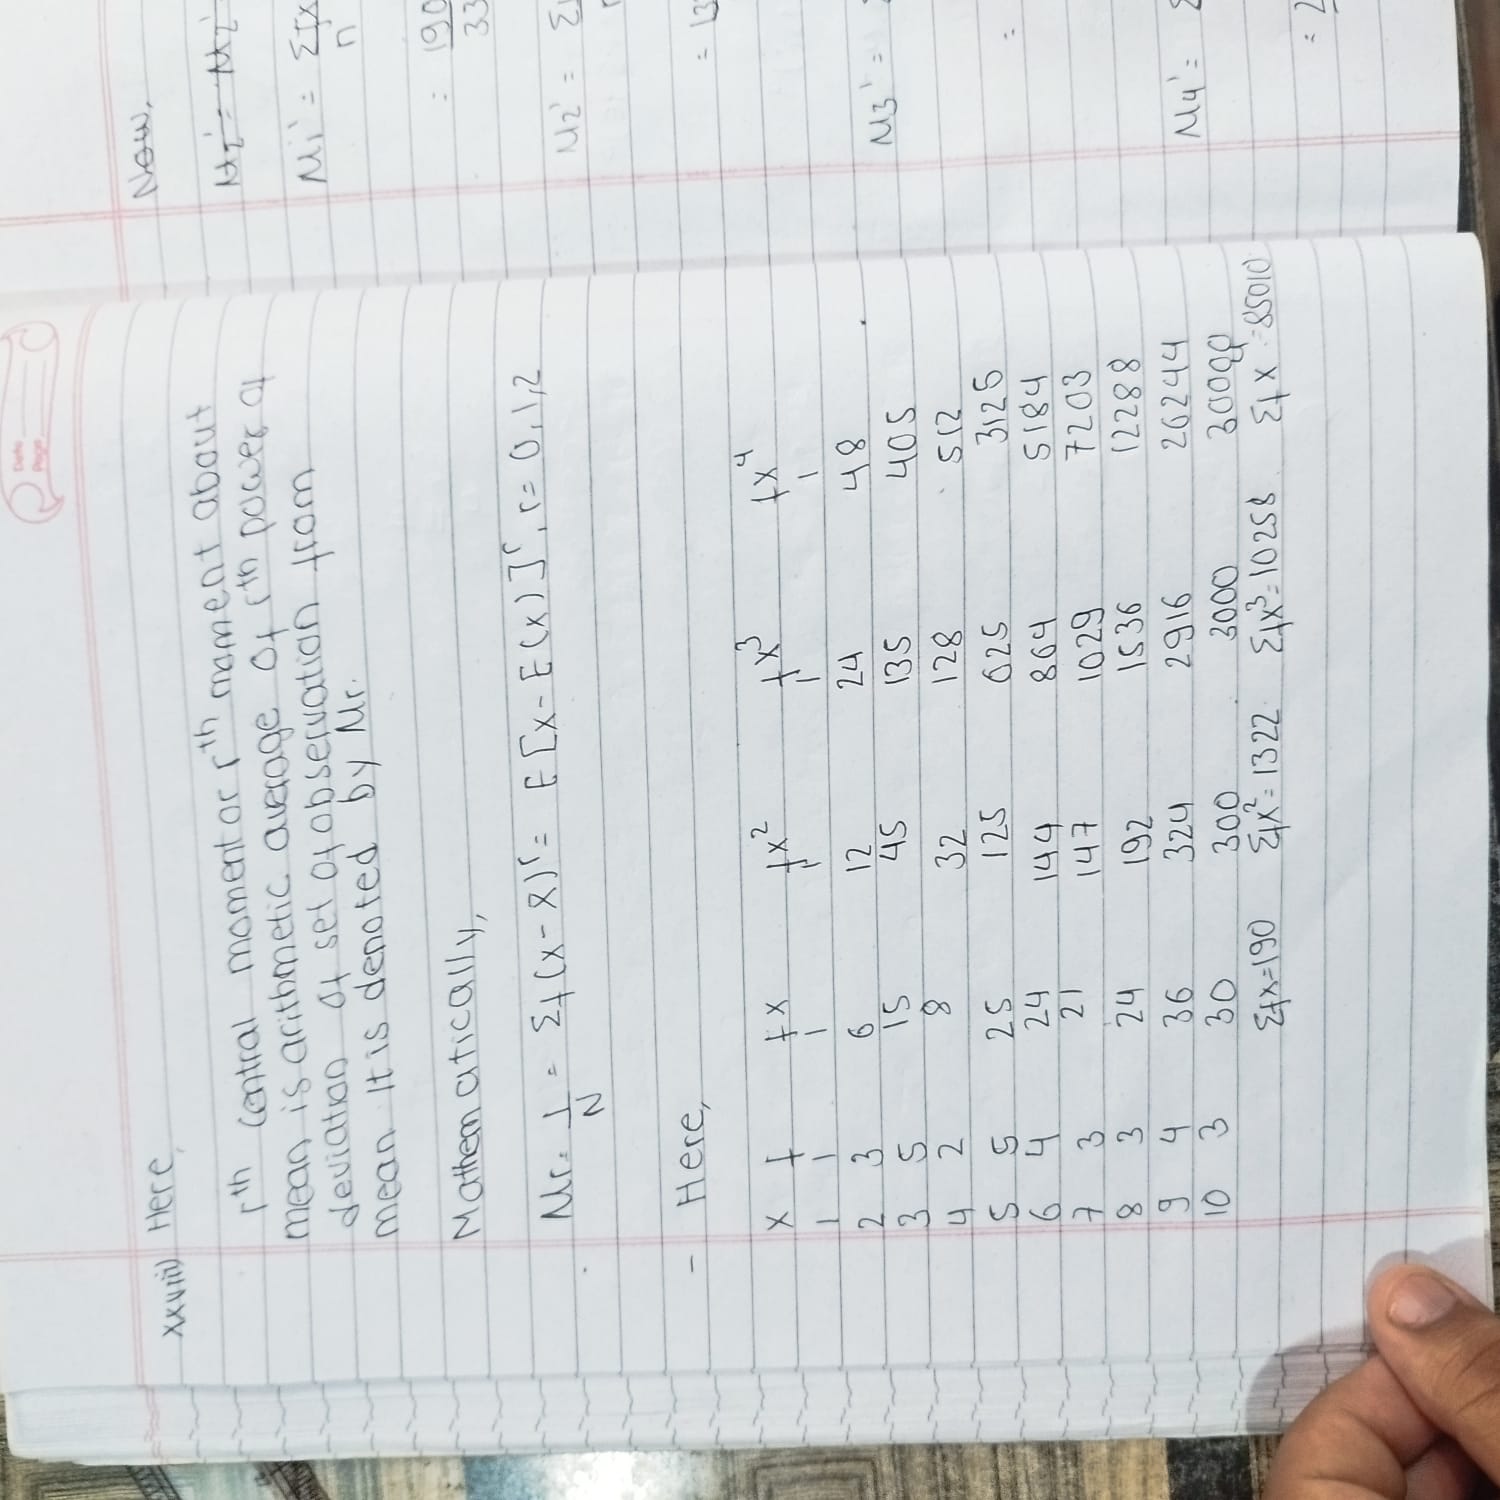 Date
Page
xxviii) Here,
rth central moment or rth moment about
mean is arithmetic average of rth power of
deviation of set of observation from
mean. It is denoted by Mr.
Mathematically,
Mr. 1/N = Σf(x-x̄)^r = E[x-E(x)]^r, r= 0,1,2
- Here,
x f fx fx² fx³ fx⁴
1 1 1 1 1 1
2 3 6 12 24 48
3 5 15 45 135 405
4 2 8 32 128 512
5 5 25 125 625 3125
6 4 24 144 864 5184
7 3 21 147 1029 7203
8 3 24 192 1536 12288
9 4 36 324 2916 26244
10 3 30 300 3000 30000
Σfx=190 Σfx²=1322 Σfx³=10258 Σfx⁴=85010
Now,
M1' = Σfx
n
= 190
33
M2' =
= 13
M3' =
=
M4' =
= 2